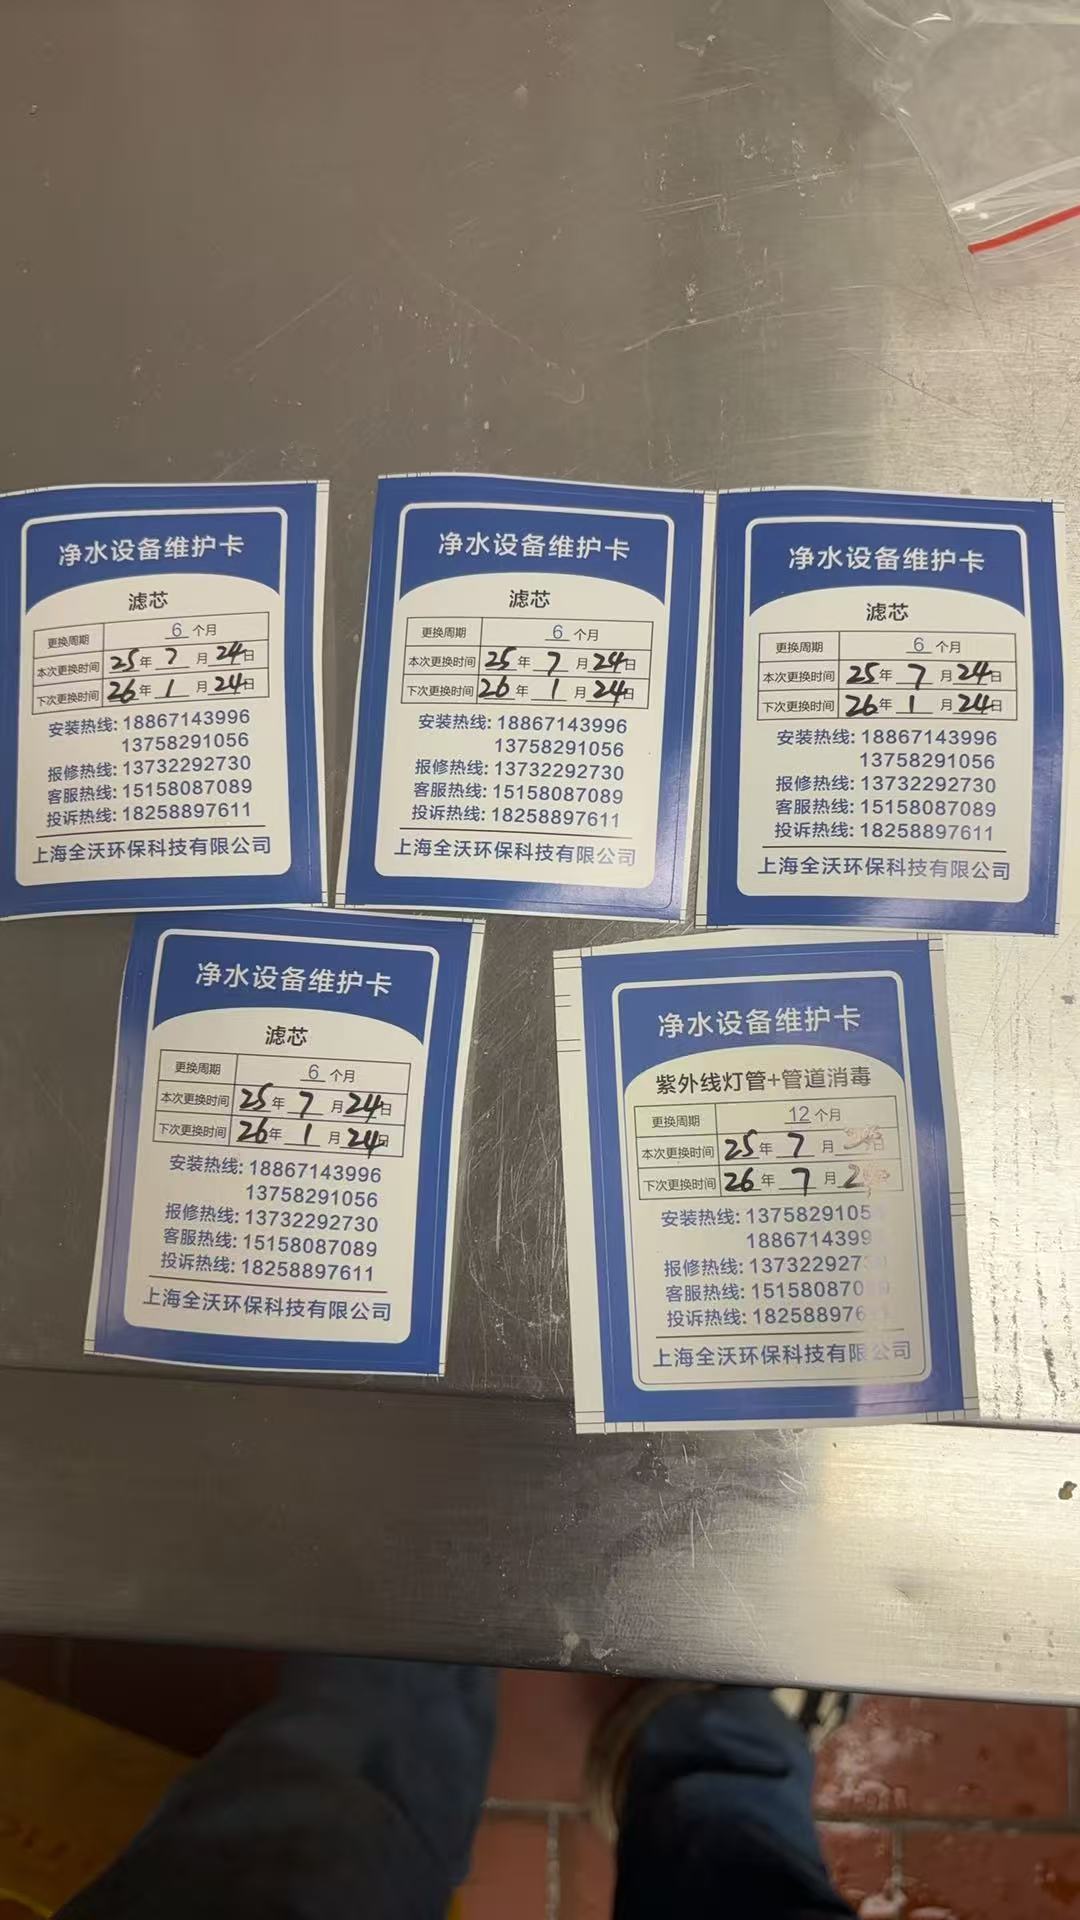 净水设备维护卡
滤芯
更换周期 6 个月
本次更换时间 25年 7 月 24日
下次更换时间 26年 1 月 24日
安装热线: 18867143996
13758291056
报修热线: 13732292730
客服热线: 15158087089
投诉热线: 18258897611
上海全沃环保科技有限公司
净水设备维护卡
滤芯
更换周期 6 个月
本次更换时间 25年 7 月 24日
下次更换时间 26年 1 月 24日
安装热线: 18867143996
13758291056
报修热线: 13732292730
客服热线: 15158087089
投诉热线: 18258897611
上海全沃环保科技有限公司
净水设备维护卡
滤芯
更换周期 6 个月
本次更换时间 25年 7 月 24日
下次更换时间 26年 1 月 24日
安装热线: 18867143996
13758291056
报修热线: 13732292730
客服热线: 15158087089
投诉热线: 18258897611
上海全沃环保科技有限公司
净水设备维护卡
滤芯
更换周期 6 个月
本次更换时间 25年 7 月 24日
下次更换时间 26年 1 月 24日
安装热线: 18867143996
13758291056
报修热线: 13732292730
客服热线: 15158087089
投诉热线: 18258897611
上海全沃环保科技有限公司
净水设备维护卡
紫外线灯管+管道消毒
更换周期 12 个月
本次更换时间 25年 7 月 日
下次更换时间 26年 7 月
安装热线: 1375829105
1886714399
报修热线: 137322927
客服热线: 151580870
投诉热线: 182588976
上海全沃环保科技有限公司